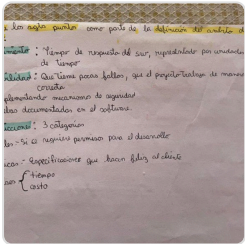 los siete puntos como parte de la definición del ámbito d
miento: Tiempo de respuesta del swr, representado por unidades
de tiempo
ilidad: Que tiene pocos fallos, que el proyecto trabaja de manera
correcta
plementando mecanismo de seguridad
das documentados en el software.
icciones: 3 categorias
les: Si se requiere permisos para el desarrollo
icas: Especificaciones que hacen feliz al cliente
tiempo
costo